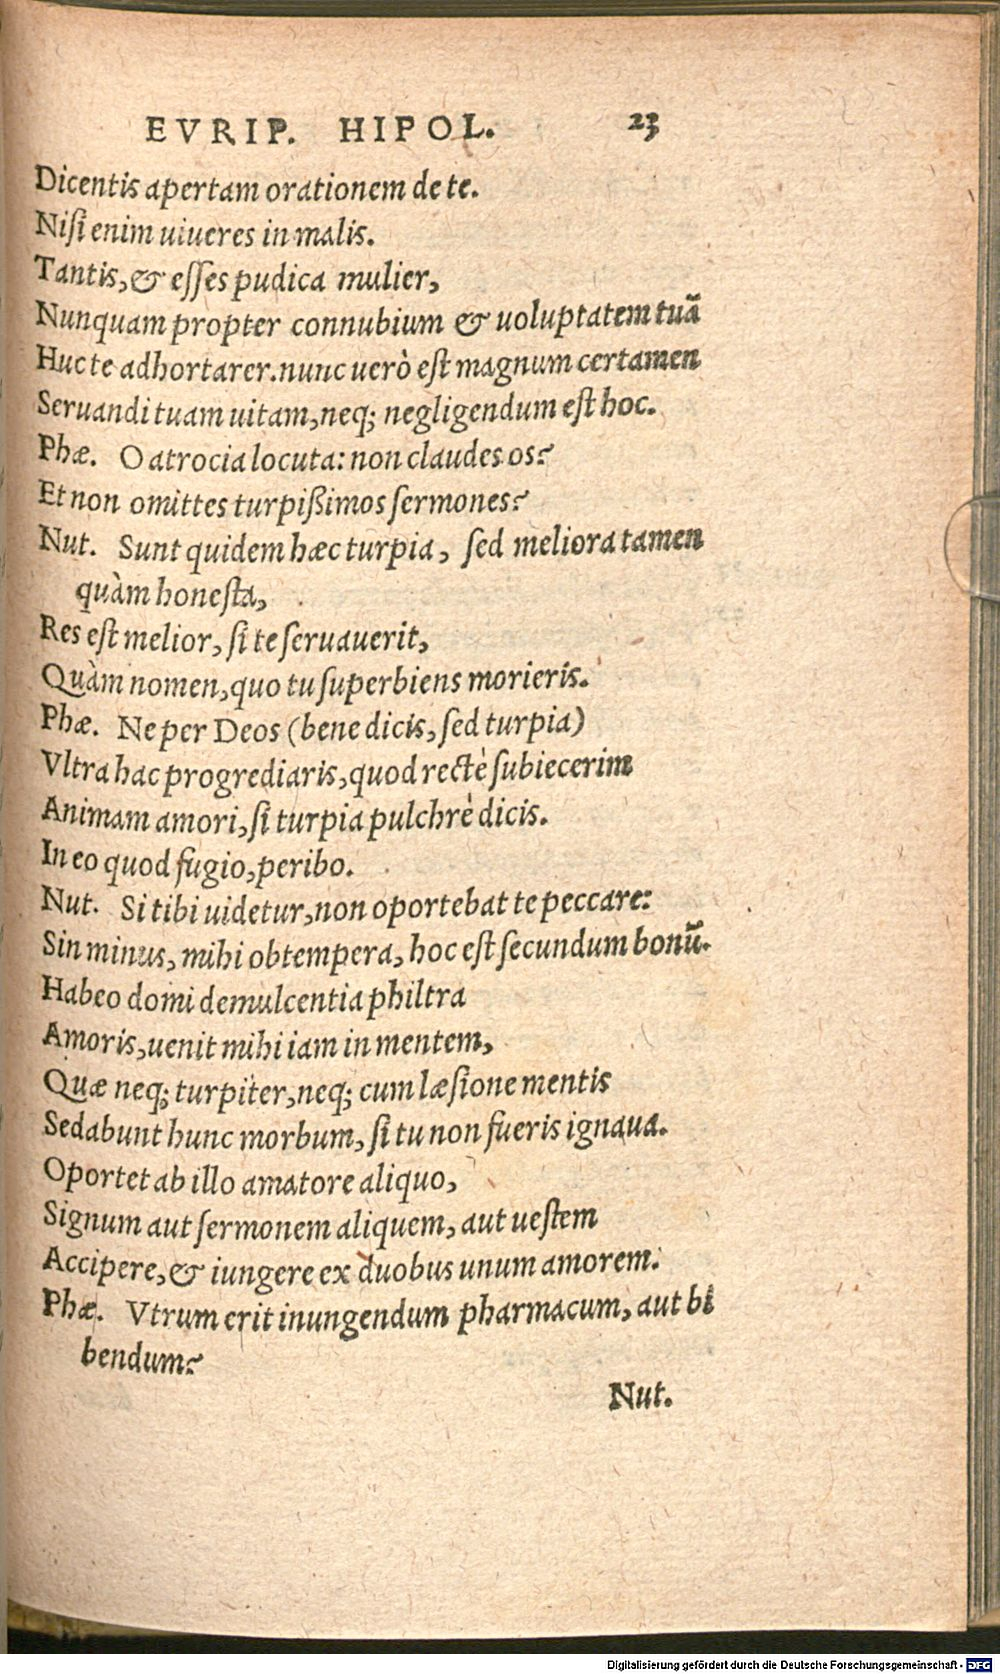 EVRIP. HIPOL. 23
Dicentis apertam orationem de te.
Niſi enim uiueres in malis.
Tantis, & eſſes pudica mulier,
Nunquam propter connubium & uoluptatem tuā
Huc te adhortarer. nunc uerò eſt magnum certamen
Seruandi tuam uitam, neq; negligendum eſt hoc.
Phæ. O atrocia locuta: non claudes os?
Et non omittes turpißimos ſermones?
Nut. Sunt quidem hæc turpia, ſed meliora tamen
quàm honeſta,
Res eſt melior, ſi te ſeruauerit,
Quàm nomen, quo tu ſuperbiens morieris.
Phæ. Ne per Deos (bene dicis, ſed turpia)
Vltra hac progrediaris, quod rectè ſubiecerim
Animam amori, ſi turpia pulchrè dicis.
In eo quod fugio, peribo.
Nut. Si tibi uidetur, non oportebat te peccare:
Sin minus, mihi obtempera, hoc eſt ſecundum bonū.
Habeo domi demulcentia philtra
Amoris, uenit mihi iam in mentem,
Quæ neq; turpiter, neq; cum læſione mentis
Sedabunt hunc morbum, ſi tu non fueris ignaua.
Oportet ab illo amatore aliquo,
Signum aut ſermonem aliquem, aut ueſtem
Accipere, & iungere ex duobus unum amorem.
Phæ. Vtrum erit inungendum pharmacum, aut bi
bendum?
Nut.
Digitalisierung gefördert durch die Deutsche Forschungsgemeinschaft - DFG